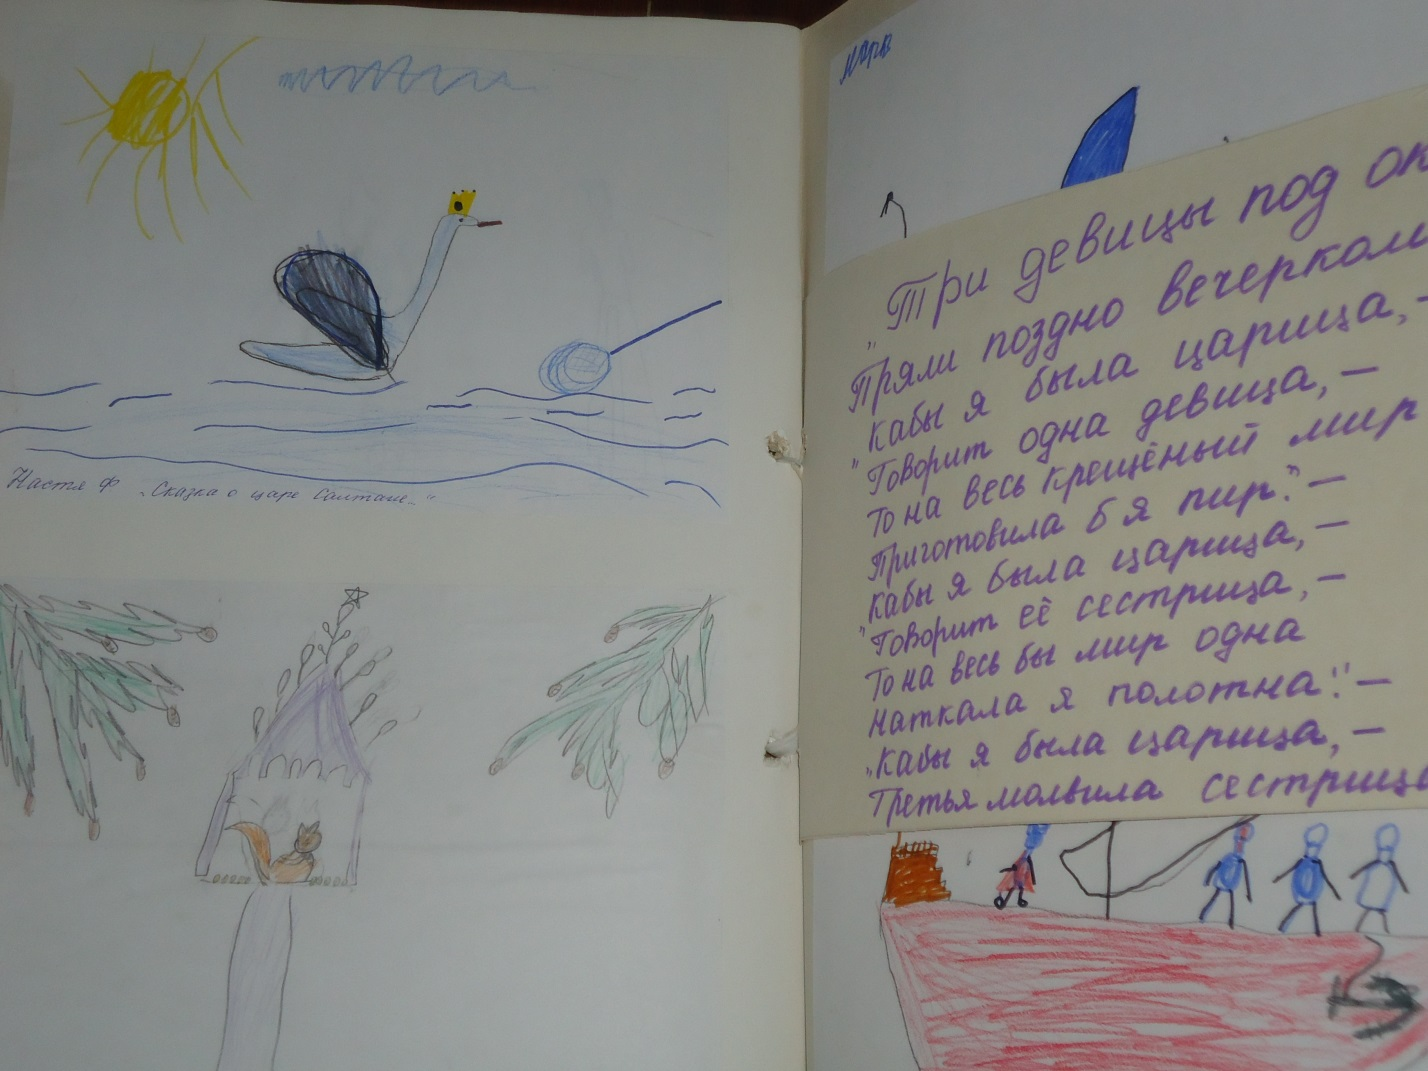 Настя Ф „Сказка о царе Салтане..“
"Три девицы под ок
Пряли поздно вечерком
"Кабы я была царица,-
"Говорит одна девица,-
То на весь крещёный мир
Приготовила б я пир."-
"Кабы я была царица,-
"Говорит её сестрица,-
То на весь бы мир одна
Наткала я полотна."-
"Кабы я была царица,-
Третья молвила сестрица